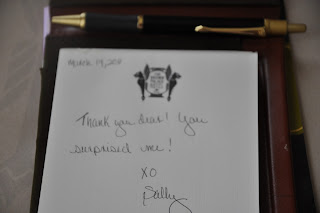 March 19, 2011
Thank you dear! You
surprised me!
XO
Sally